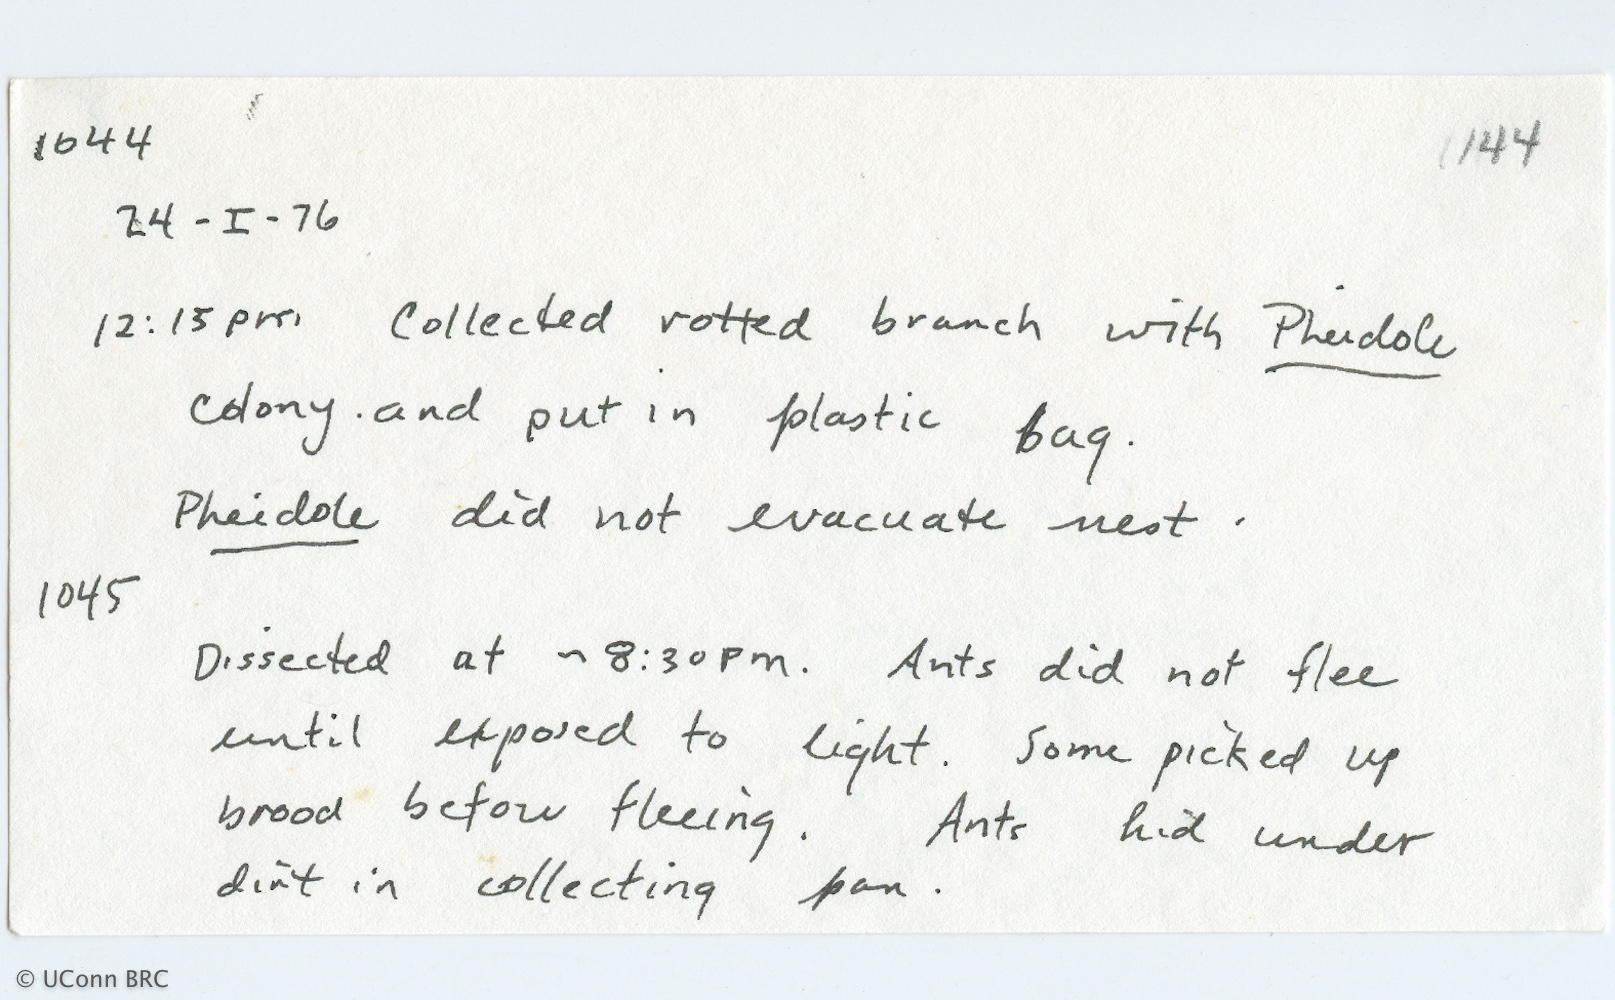 1044 1144
24-I-76
12:15pm Collected rotted branch with Pheidole
colony. and put in plastic bag.
Pheidole did not evacuate nest.
1045
Dissected at ~8:30pm. Ants did not flee
until exposed to light. Some picked up
brood before fleeing. Ants hid under
dirt in collecting pan.
© UConn BRC